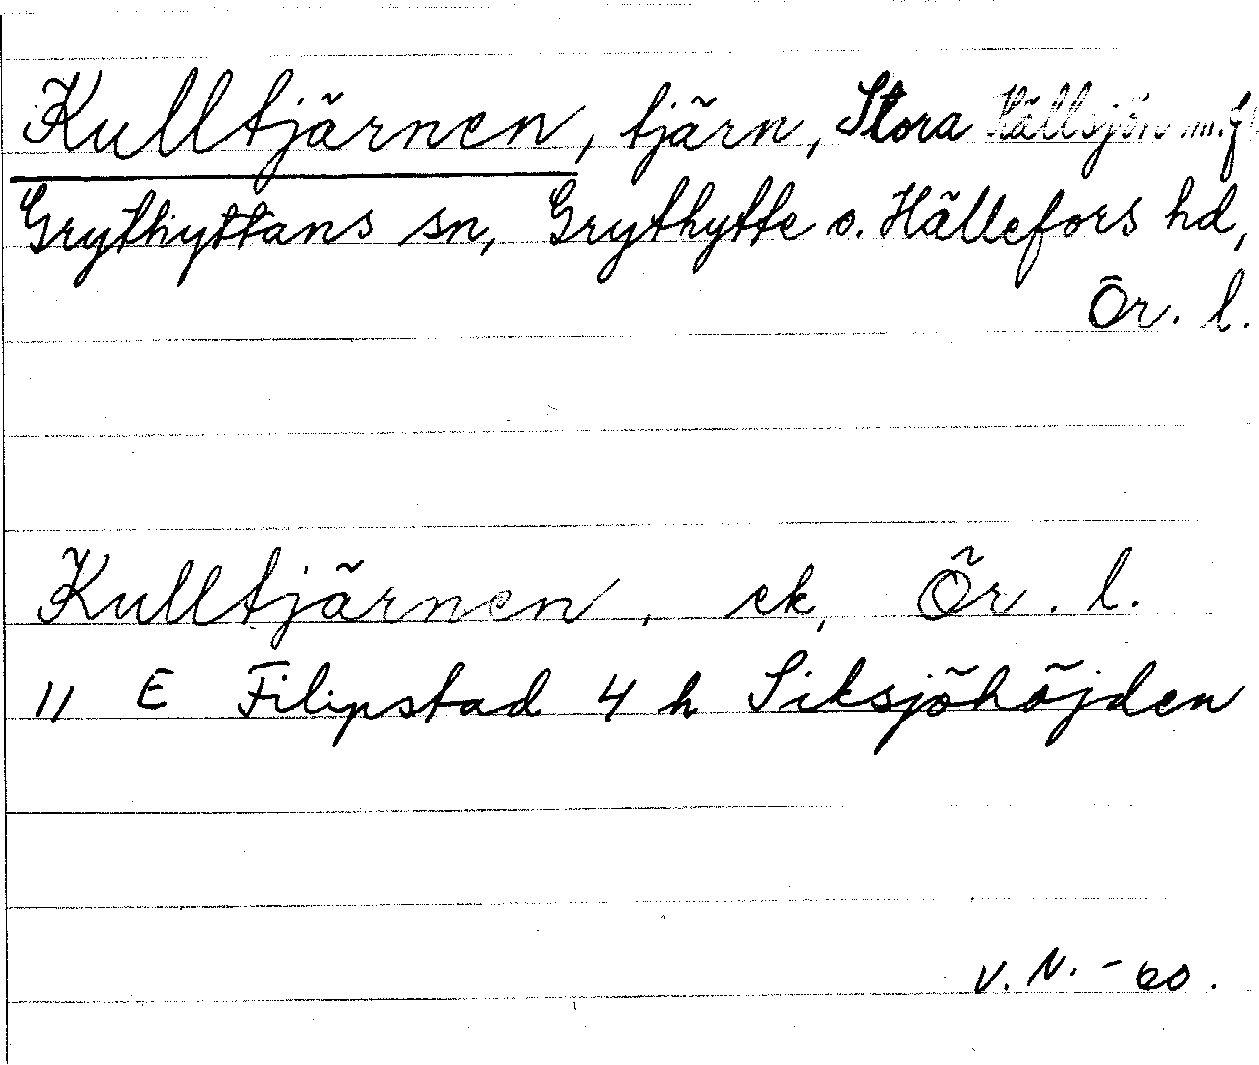 Kulltjärnen, tjärn, Stora Hällsjön m.fl
Grythyttans sn, Grythytte o. Hällefors hd,
Ör. l.
Kulltjärnen, ek, Ör. l.
11 E Filipstad 4 h Siksjöhöjden
V. N. - 60.